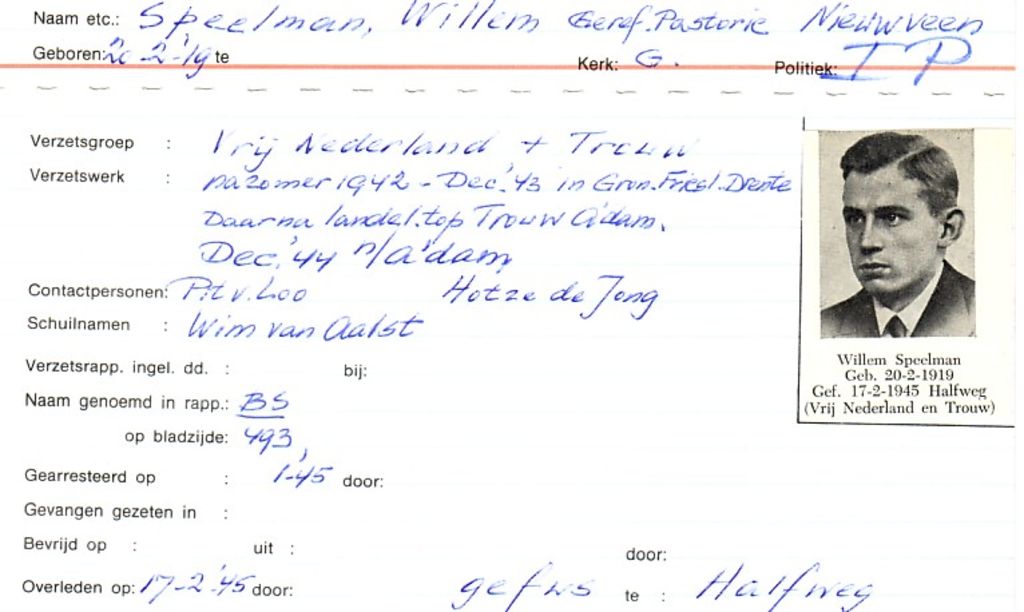 Naam etc.: Speelman, Willem Geref. Pastorie Nieuwveen
Geboren: 20-2-'19 te Kerk: G. Politiek:
Verzetsgroep : Vrij Nederland + Trouw
Verzetswerk : nazomer 1942 - Dec.'43 in Gron. Friesl. Drente
Daarna landel. top Trouw A'dam.
Dec.'44 n/A'dam
Contactpersonen: Pit v. Loo Hotze de Jong
Schuilnamen : Wim van Aalst
Verzetsrapp. ingel. dd. : bij:
Naam genoemd in rapp.: BS
op bladzijde: 493,
Gearresteerd op : 1-45 door:
Gevangen gezeten in :
Bevrijd op : uit : door:
Overleden op: 17-2-'45 door: te : Halfweg
Willem Speelman
Geb. 20-2-1919
Gef. 17-2-1945 Halfweg
(Vrij Nederland en Trouw)